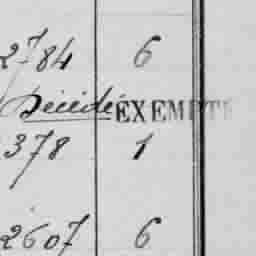 2784 6
Décédé EXEMPTE
378 1
2607 6